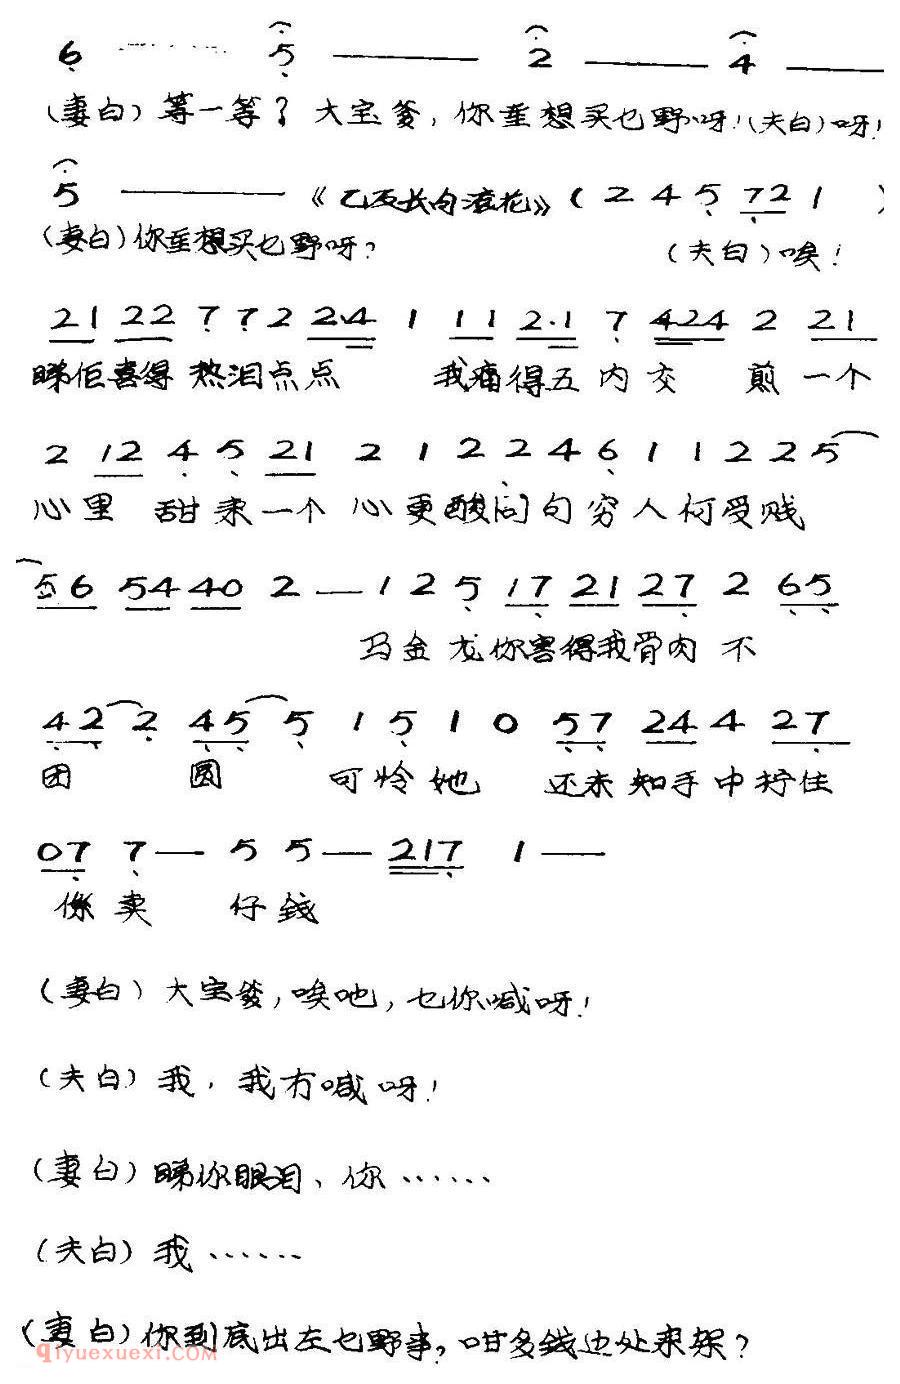 6 ········ 5 —— 2 —— 4 ——
(妻白) 等一等？大宝爹，你重想买乜野呀！(夫白) 呀！
5 —— 《乙反长句滚花》( 2 4 5 7 2 1 )
(妻白) 你重想买乜野呀？ (夫白) 唉！
2 1 2 2 7 7 2 2·4 1 1 1 2·1 7 4 2 4 2 2 1
睇佢喜得 热泪点点 我痛得五 内交 煎 一个
2 1 2 4 5 2 1 2 1 2 2 4 6 1 1 2 2 5
心里 甜来一个 心更酸问句穷人何受贱
5 6 5 4 4 0 2 — 1 2 5 1 7 2 1 2 7 2 6 5
马金龙你害得我骨肉 不
4 2 2 4 5 5 1 5 1 0 5 7 2 4 4 2 7
团 圆 可怜她 还未知手中拧住
0 7 7 — 5 5 — 2 1 7 1 —
係卖 仔钱
(妻白) 大宝爹，唉吔，乜你喊呀！
(夫白) 我，我冇喊呀！
(妻白) 睇你眼泪、你······
(夫白) 我······
(妻白) 你到底出左乜野事，咁多钱边处来架？
qiyuexuexi.com